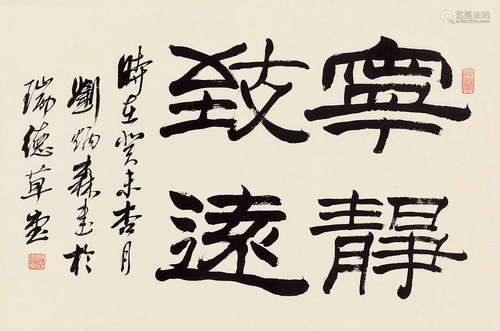 寧靜
致遠
時在癸未杏月
劉炳森書於
瑞德草堂